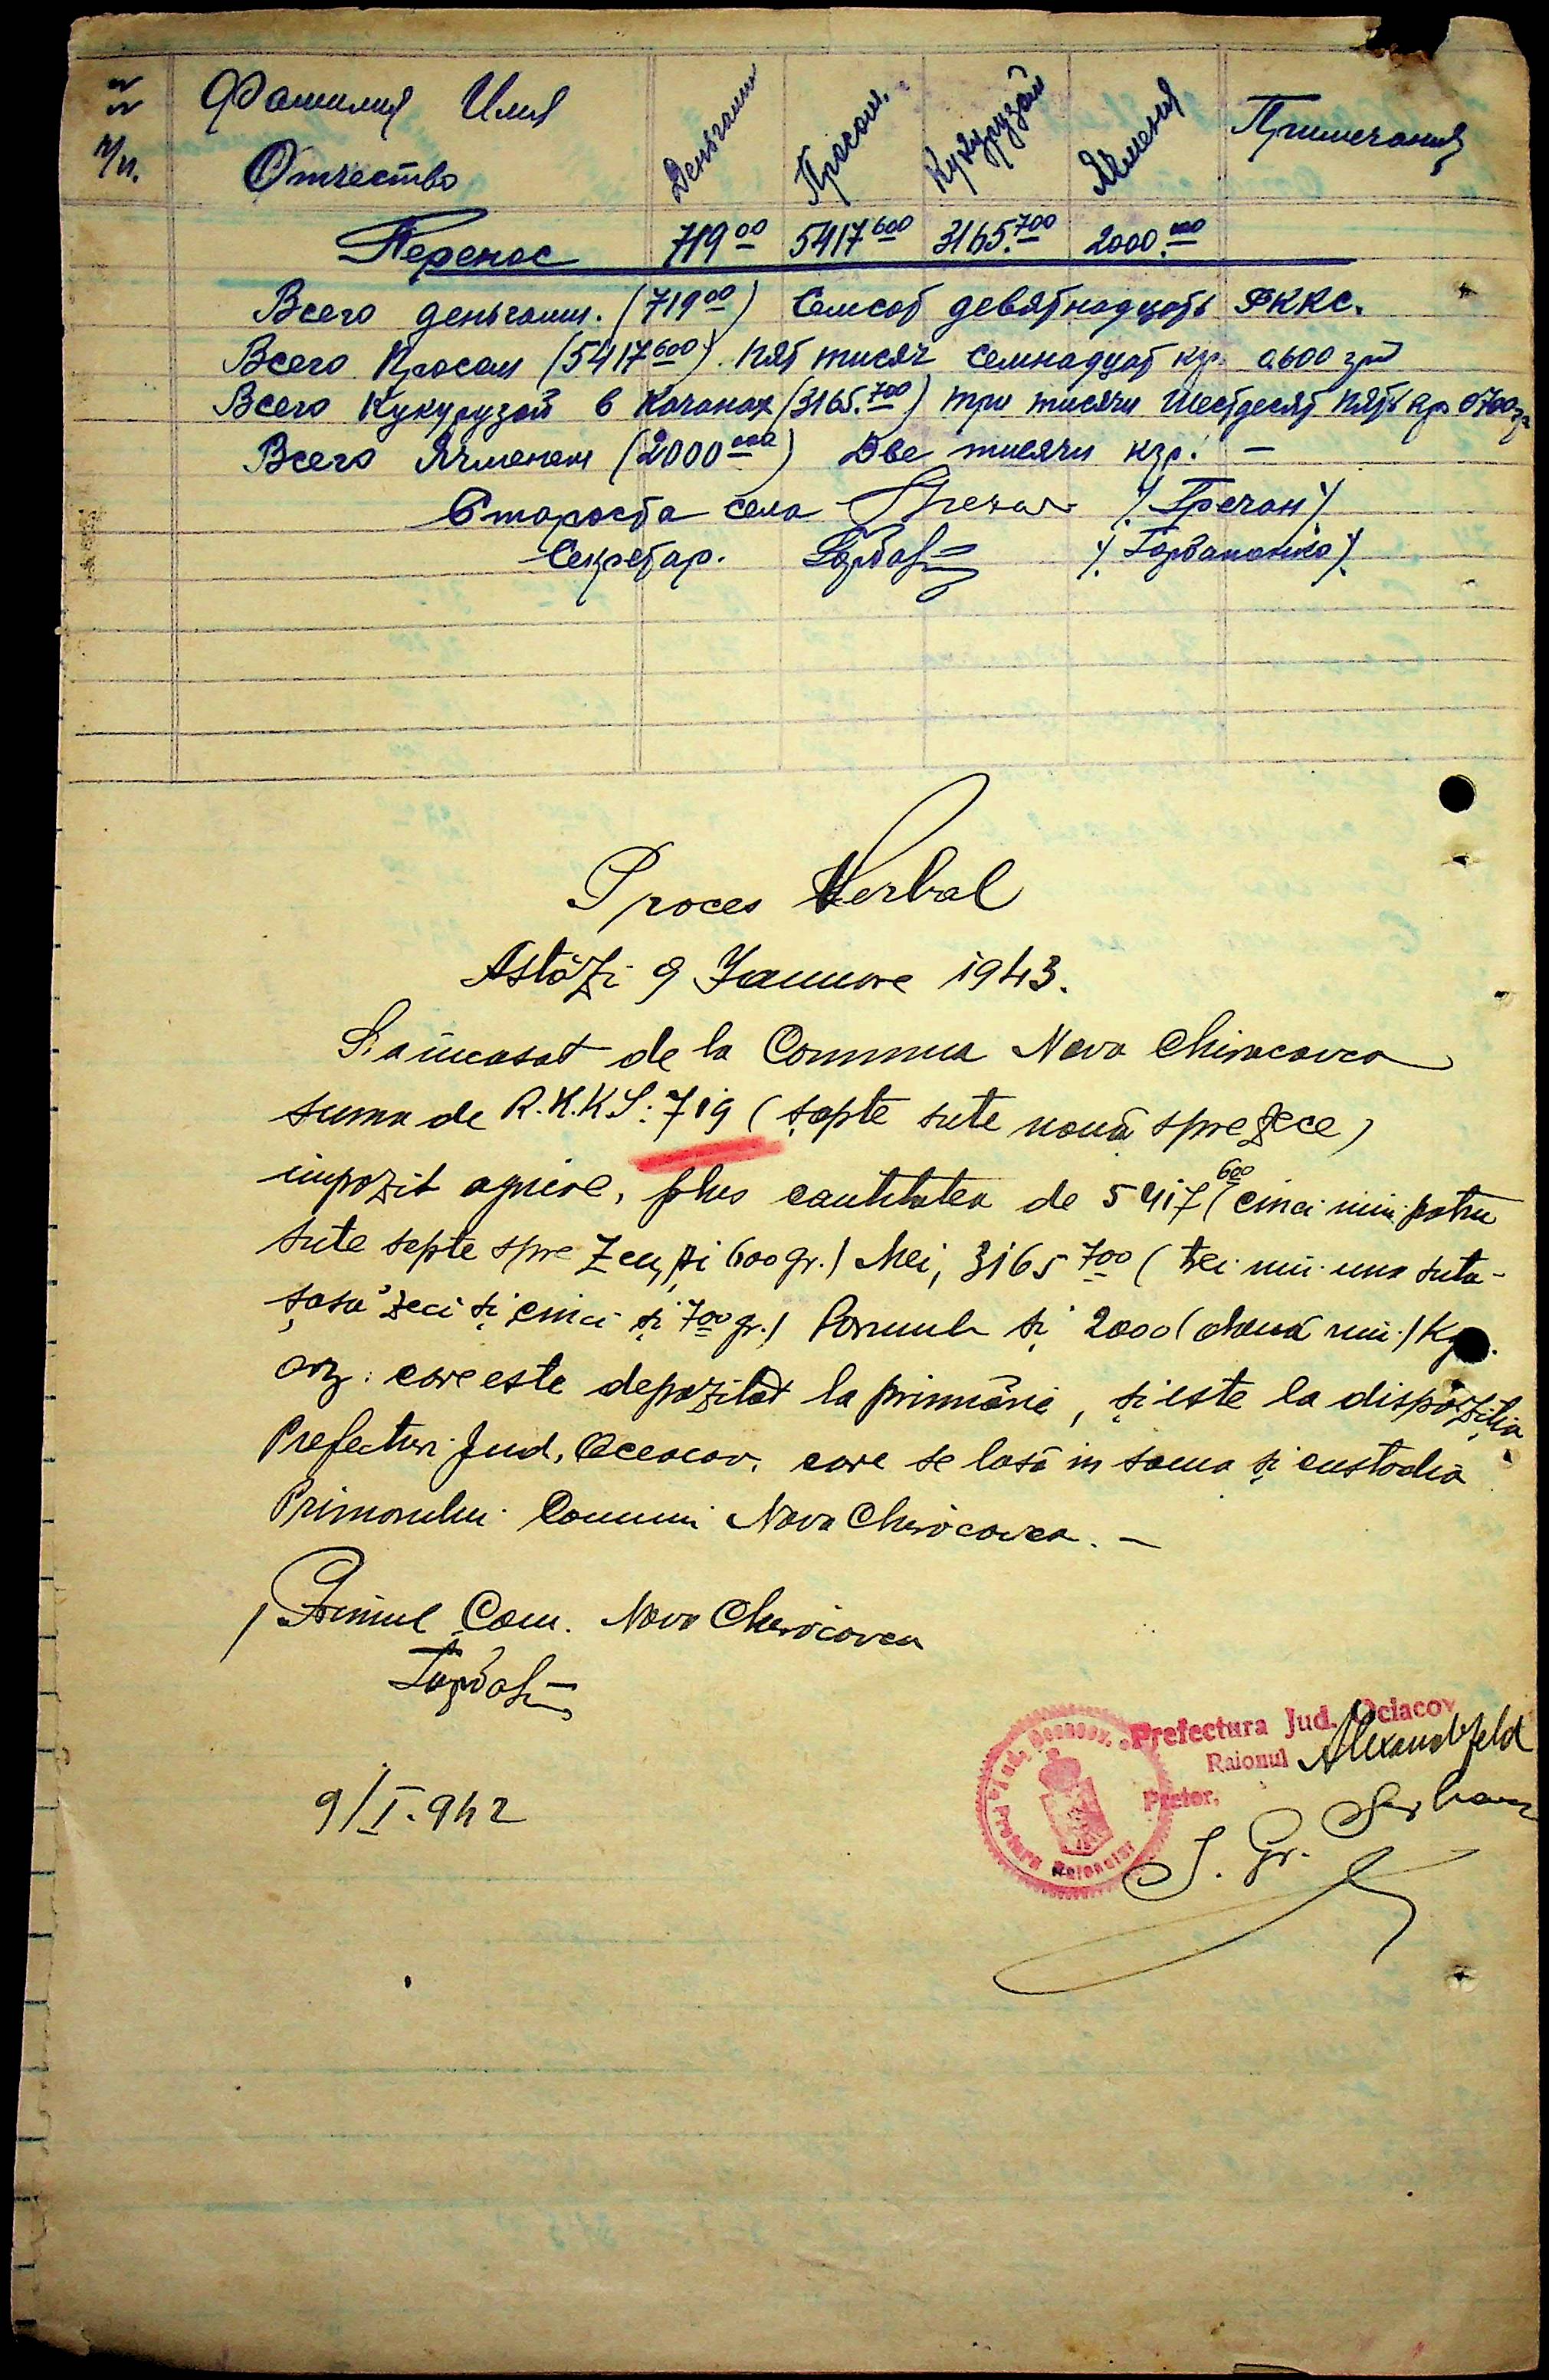 №№ п/п. Фамилия Имя Отчество Деньгами Просом. Кукурузой Ячменя Примечания
Перенос 719 00 5417 600 3165. 700 2000. 000
Всего деньгами. (719 00) Семсот девятнадцать РККС.
Всего Просом (5417 600). Пят тисяч семнадцат кгр. 0.600 гр
Всего Кукурузой в Качанах (3165. 700) три тисячи шестдесят пять кгр 0700 гр
Всего Ячменем (2000 000) Две тисячи кгр. —
Староста села Гречан /. Гречан /
Секретар. Горбат /. Горбатенко /.
Proces Verbal
Astăzi 9 Januare 1943.
S'a încasat de la Comuna Nova Chiracovca
suma de R.K.K.S: 719 (șapte sute nouă spre zece)
impozit agricol, plus cantitatea de 5417 600 (cinci mii patru
sute șepte spre zece și 600 gr.) Mei, 3165 700 (trei mii una suta-
șasă zeci și cinci și 700 gr.) Porumb și 2000 (două mii.) Kgr.
orz. care este depozitat la primărie, și este la dispoziția
Prefecturi Jud. Oceacov. care se lasă in sama și custodia
Primarului Comuni Nova Chirocovca. —
/ Primul Com. Nova Chirocovca
Горбат
9/I.942
Prefectura Jud. Ociacov
Raionul Alexandrfeld
Pretor,
S. Gr. Serban
Jud. Oceacov. Pretura Raionului